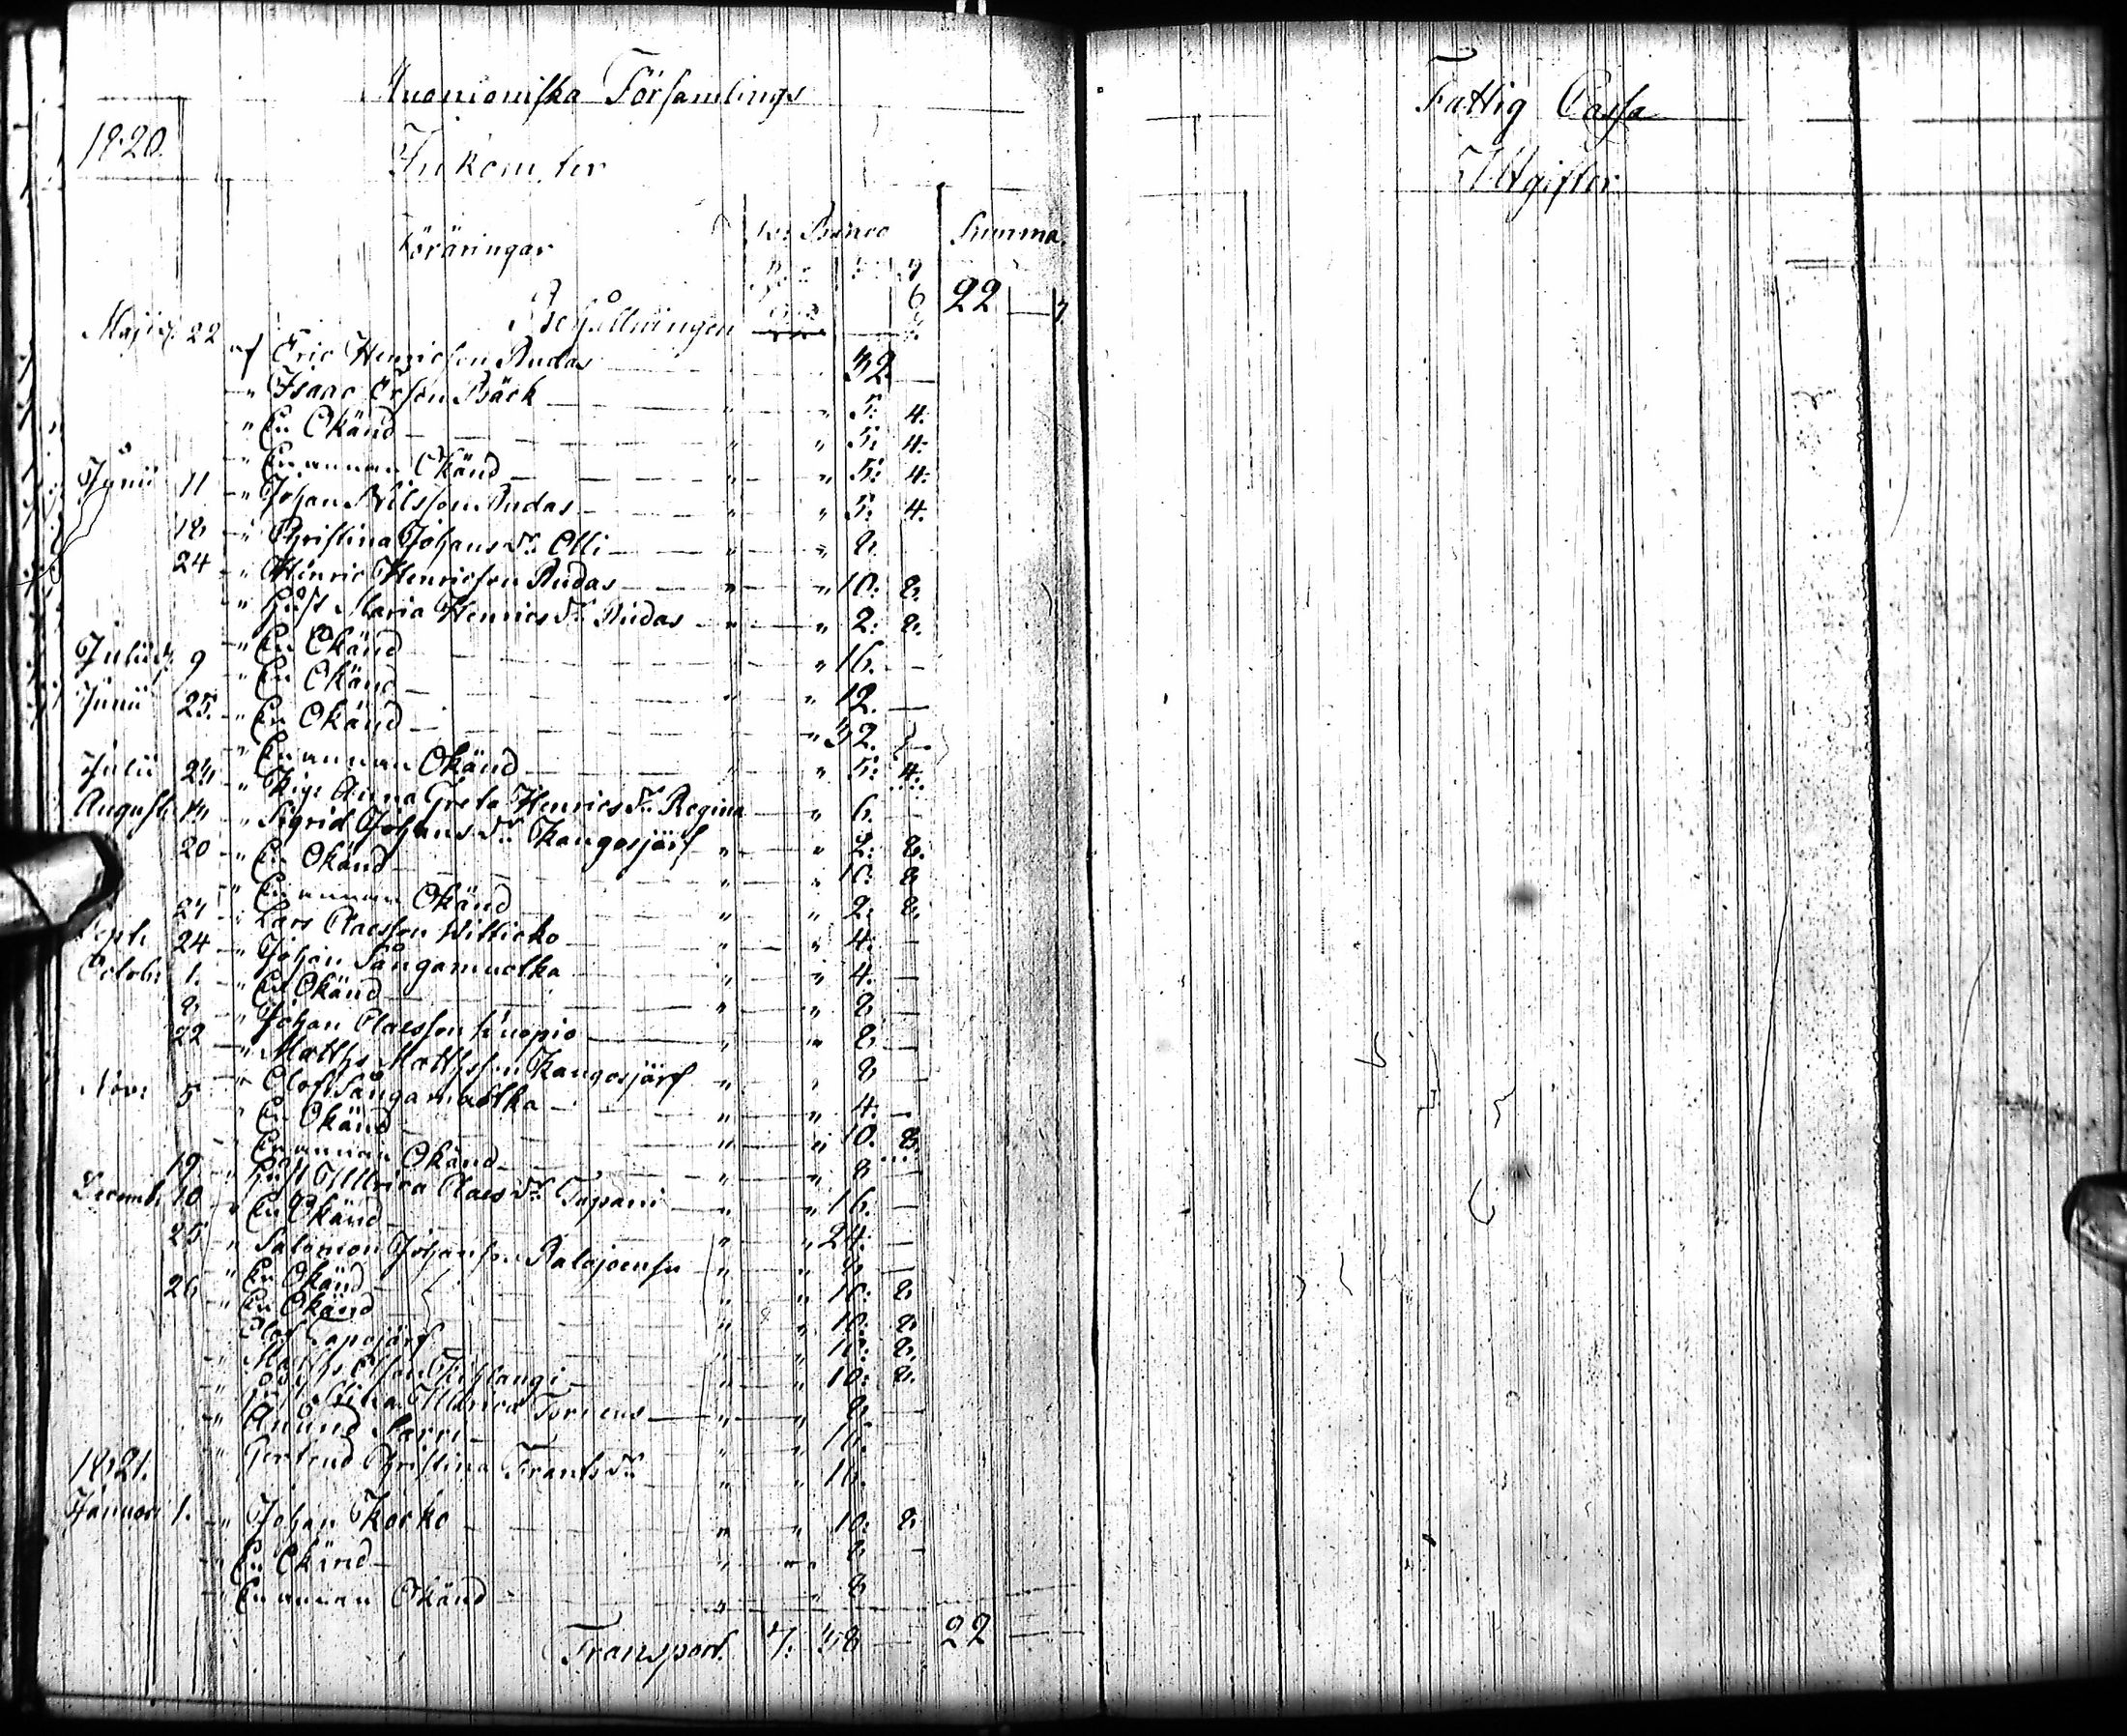 Muonioniska Församlings
1820.
Inkomster
Föräringar
Banco
Summa
Behållningen 22
Maji d. 22 af Eric Henricson Rudas 32. —
" Isaac Ersson Bäck " " 5: 4.
" En Okänd " " 5: 4.
" En annan Okänd " " 5: 4.
Junii 11 " Johan Nilsson Rudas " " 5. 4.
18 " Christina Johans dr. Olli " " 8.
24 " Henric Henricson Rudas " " 10: 8.
" Hust. Maria Henrics dr. Rudas " " 2: 8.
" En Okänd " 16. —
Julii d. 9 " En Okänd " " 12. —
Junii 25. " En Okänd " 32.
" En annan Okänd " " 5: 4.
Julii 23 " Pig. Anna Greta Henrics dr. Regina " 6. —
Augusti 13 " Sigrid Johans dr. Kangosjärf " " 2: 8.
20 " En Okänd " " 10: 8
" En annan Okänd " " 2: 8.
27 " Lars Claesson Witticko " " 4. —
Sept. 24 " Johan Sångamuotka " " 4. —
Octobr. 1. " En Okänd " " 8 —
8 " Johan Claesson Kuopio " " 8 —
22 " Matths Mattsson Kangosjärf " " 8 —
" Olof Sångamuotka " " 4. —
Nov: 5 " En Okänd " " 10. 8.
" En annan Okänd " " 8 —
19 " Hust Ulrica Claes dr. Tapani " " 16. —
Decemb: 10 " En Okänd " " 24. —
25 " Salomon Johansson Palojoensu " "
" En Okänd " " 10: 8
26 " En Okänd " " 10: 8
Olof Lapojärf " " 10: 8.
" Matths Olsson Kihlangi " " 10: 8.
" Hust Stina Ulrica Torneus " " 8 —
" Anund Sarri " " 16.
" Gertrud Christina Frants dr. " " 16.
1821.
Januari 1. " Johan Kocko " " 10: 8
" En Okänd " " 8 —
" En annan Okänd " " 8
Transport. 7: 38 — 22 —
Fattig Cassa
Utgifter